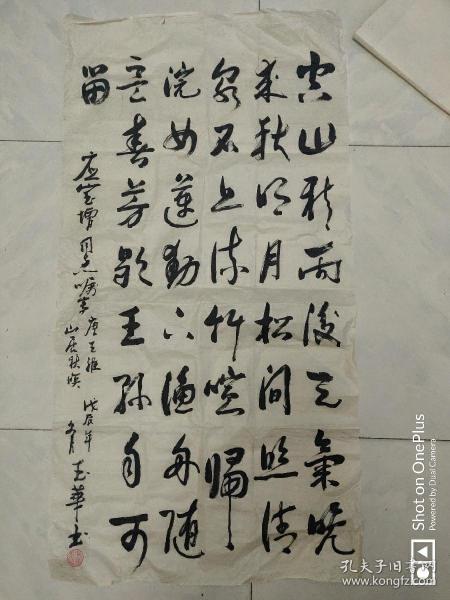 空山新雨後天氣晚
来秋明月松间照清
泉石上流竹喧歸
浣女莲動下漁舟随
意春芳歇王孫自可
留
应宝增同志嘱书
唐王维
山居秋暝
戊辰年
月
華书
Shot on OnePlus
Powered by Dual Camera
孔夫子旧书网
www.kongfz.com